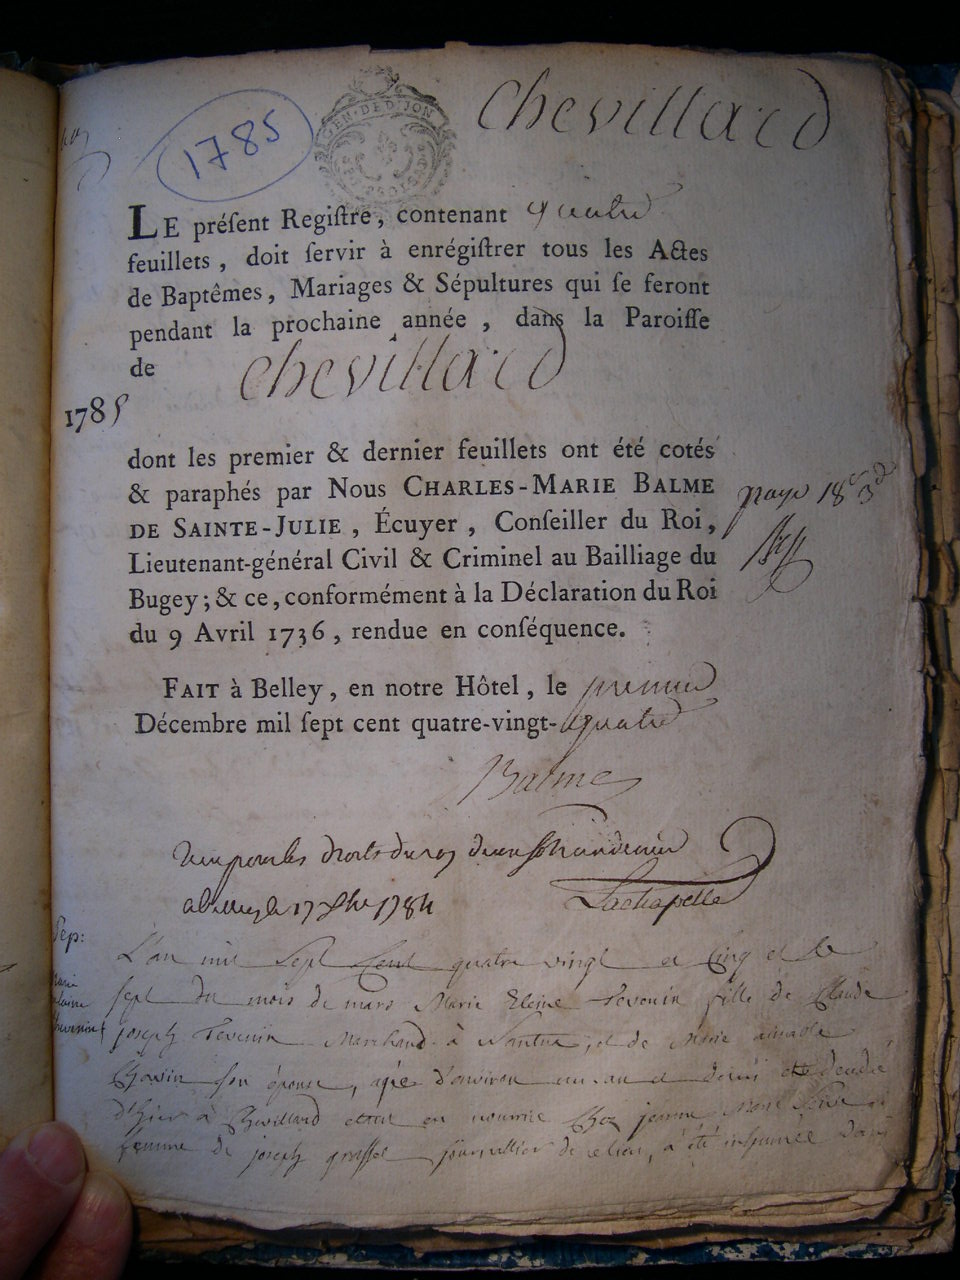 Chevillard
1785
GEN·DE DIJON
LE préſent Regiſtre, contenant quatre
feuillets, doit ſervir à enrégiſtrer tous les Actes
de Baptêmes, Mariages & Sépultures qui ſe feront
pendant la prochaine année, dans la Paroiſſe
de Chevillard
1785
dont les premier & dernier feuillets ont été cotés
& paraphés par Nous CHARLES-MARIE BALME
DE SAINTE-JULIE, Écuyer, Conſeiller du Roi,
Lieutenant-général Civil & Criminel au Bailliage du
Bugey; & ce, conformément à la Déclaration du Roi
du 9 Avril 1736, rendue en conſéquence.
payé 18 s 3 d
FAIT à Belley, en notre Hôtel, le premier
Décembre mil ſept cent quatre-vingt-quatre
Balme
pour les droits du roy
a Belley le 17 1784
Lachapelle
Sep:
L'an mil Sept Cent quatre vingt et Cinq et le
sept du mois de mars Marie Eleine Tevenin fille de Claude
joseph Tevenin Marchand à Nantua, et de Marie aimable
son épouse, agée d'environ un an et demi
d'hier à Chevillard etant en nourrice Chez jeanne Marie
femme de joseph journallier de ce lieu, a été inhumée dans